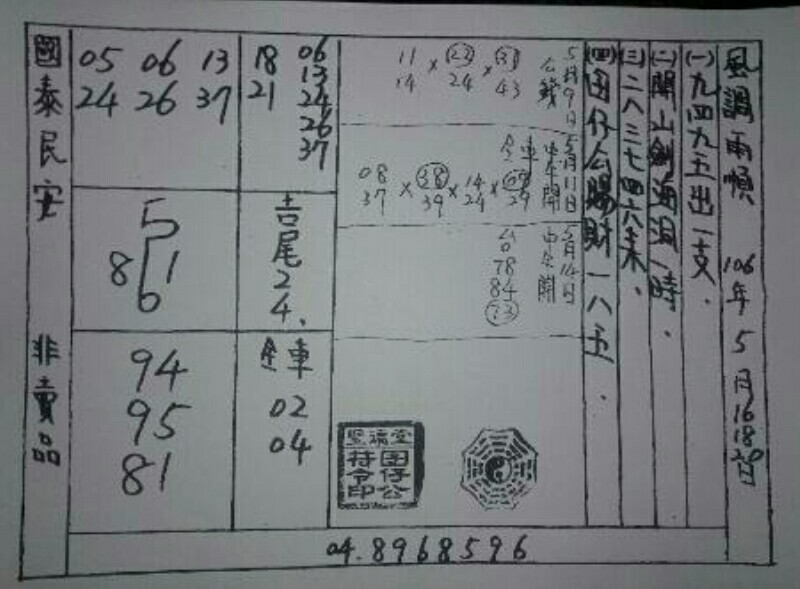 風調雨順 106年5月16 18 20日
(一)九四九五出一支.
(二)開山劍海浪一時.
(三)二八三七四六来.
(四)囝仔公賜財一八五.
5月9日
公錢
11 14 × 23 24 × 31 43
5月11日
全車 中午開
08 37 × 38 39 × 14 24 × 09 29
5月14日
中全開
78
84
73
聖福堂
囝仔公
符令印
18 21
06 13 24 26 37
吉尾24.
全車
02
04
05 06 13
24 26 37
5
8 1
6
94
95
81
國泰民安 非賣品
04.8968596